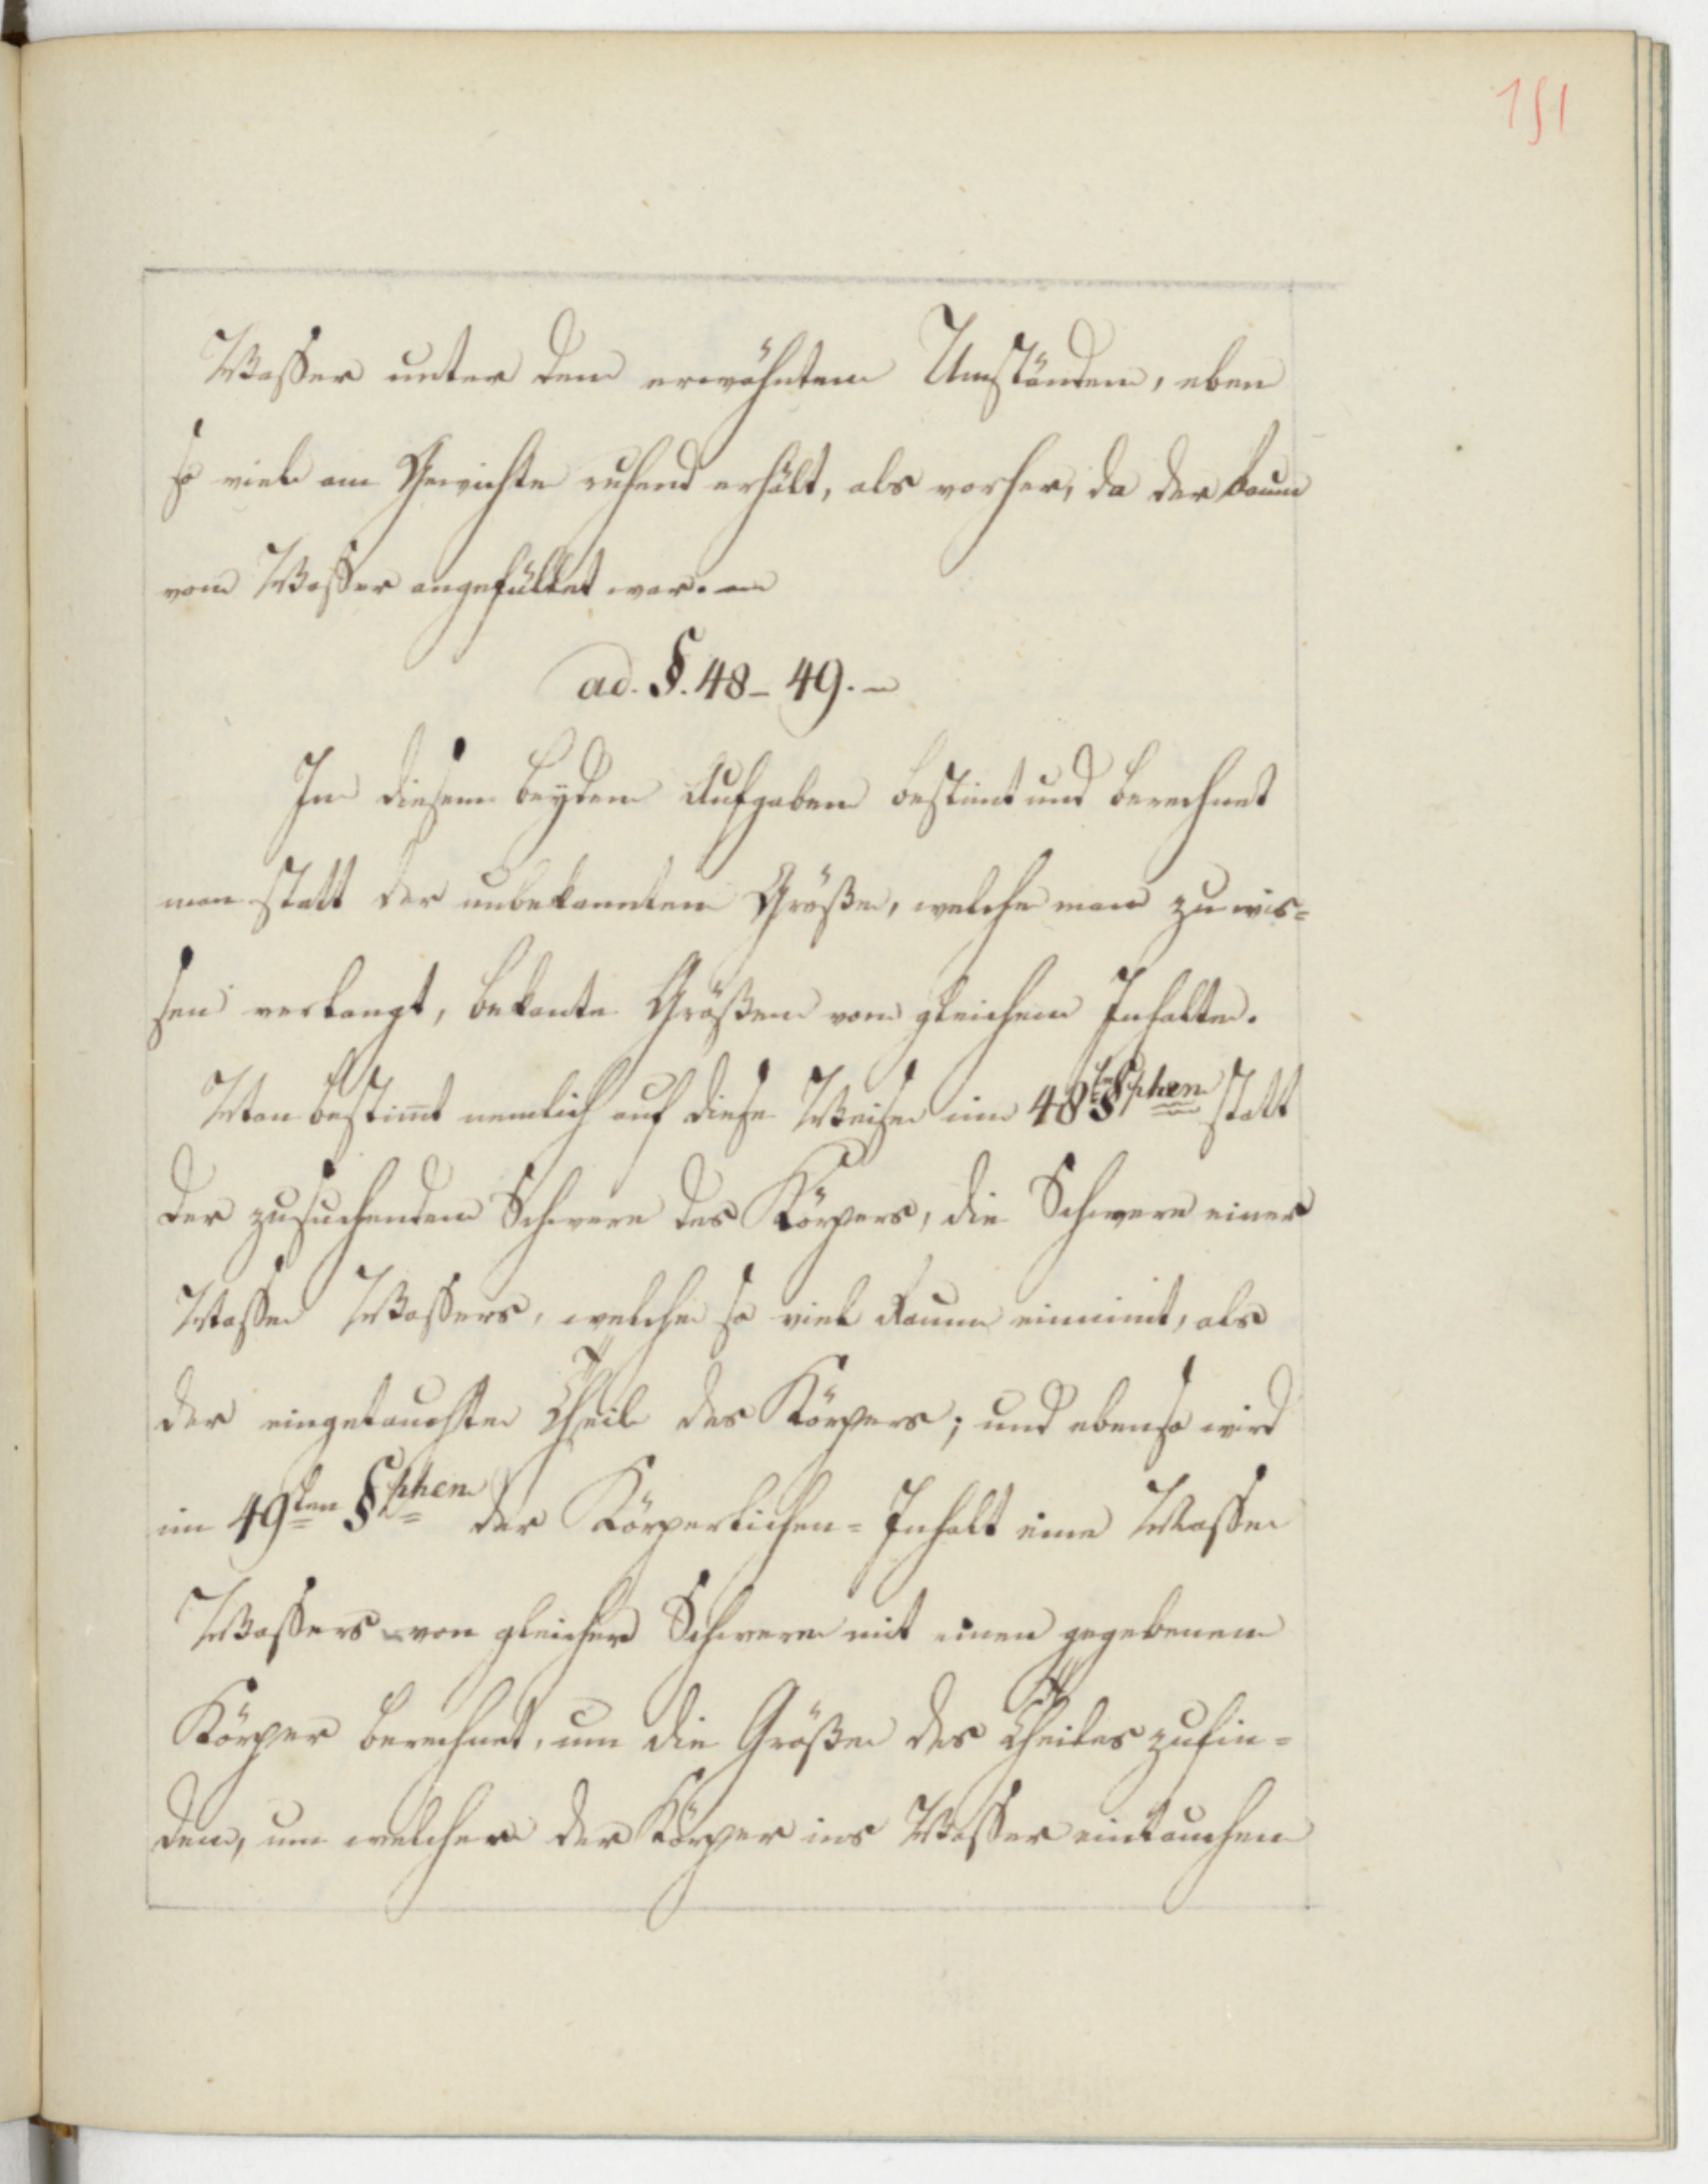 151
Wasser unter den erwähnten Umständen, eben
so viel am Gewichte ruhend erhält, als vorher, da der Raum
vom Wasser angefüllet war.
ad. §. 48 – 49. –
In diesen beyden Aufgaben bestimt und berechnet
man statt der unbekannten Größe, welche man zu wis=
sen verlangt, bekante Größen von gleichem Inhalte.
Man bestim̄t nemlich auf diese Weise im 48ten §phen statt
der zusuchenden Schwere des Körpers, die Schwere einer
Masse Wassers, welche so viel Raum einnimt, als
der eingetauchte Theil des Körpers; und ebenso wird
im 49sten §phen der Körperlichen=Inhalt eine Masse
Wassers von gleicher Schwere mit einen gegebenen
Körper berechnet, um die Größe des Theiles zufin=
den, um welchen der Körper ins Wasser eintauchen